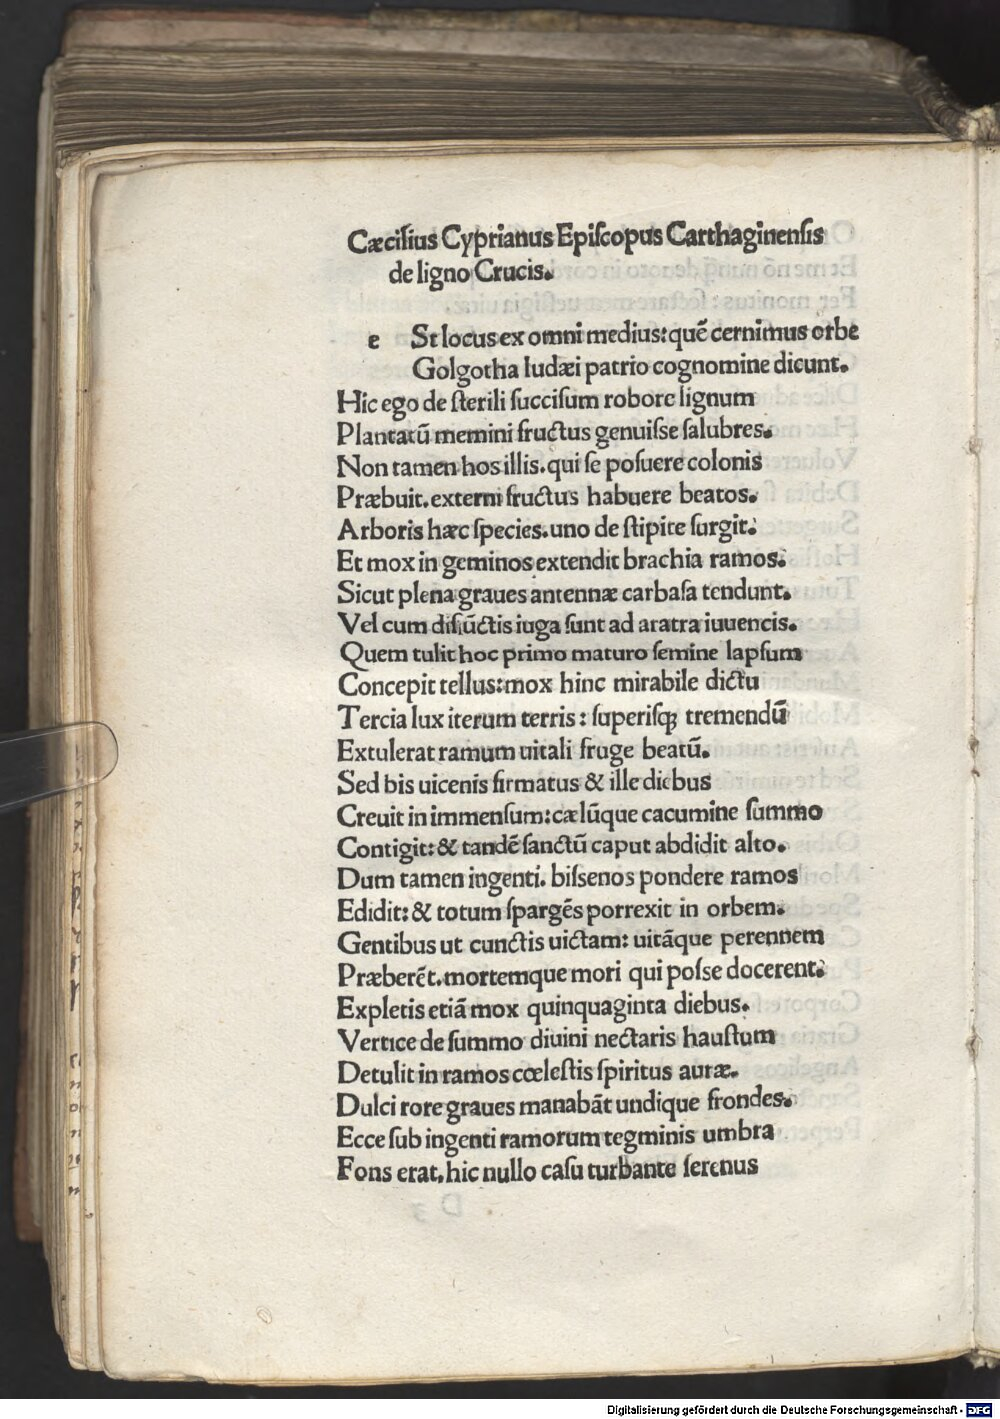 Cæciſius Cyprianus Epiſcopus Carthaginenſis
de ligno Crucis.
e St locus ex omni medius: quē cernimus orbe
Golgotha Iudæi patrio cognomine dicunt.
Hic ego de ſterili ſucciſum robore lignum
Plantatū memini fructus genuiſse ſalubres.
Non tamen hos illis. qui ſe poſuere colonis
Præbuit. externi fructus habuere beatos.
Arboris hæc ſpecies. uno de ſtipite ſurgit:
Et mox in geminos extendit brachia ramos:
Sicut plena graues antennæ carbaſa tendunt.
Vel cum diſiūctis iuga ſunt ad aratra iuuencis.
Quem tulit hoc primo maturo ſemine lapſum
Concepit tellus: mox hinc mirabile dictu
Tercia lux iterum terris: ſuperiſqꝫ tremendū
Extulerat ramum uitali fruge beatū.
Sed bis uicenis firmatus & ille diebus
Creuit in immenſum: cælūque cacumine ſummo
Contigit: & tandē ſanctū caput abdidit alto.
Dum tamen ingenti. biſsenos pondere ramos
Edidit: & totum ſpargēs porrexit in orbem.
Gentibus ut cunctis uictam: uitāque perennem
Præberēt. mortemque mori qui poſse docerent:
Expletis etiā mox quinquaginta diebus.
Vertice de ſummo diuini nectaris hauſtum
Detulit in ramos cœleſtis ſpiritus auræ.
Dulci rore graues manabāt undique frondes.
Ecce ſub ingenti ramorum tegminis umbra
Fons erat. hic nullo caſu turbante ſerenus
Digitalisierung gefördert durch die Deutsche Forschungsgemeinschaft - DFG